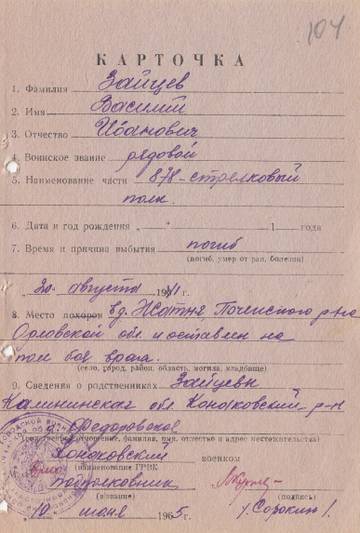 104
КАРТОЧКА
1. Фамилия Зайцев
2. Имя Василий
3. Отчество Иванович
4. Воинское звание рядовой
5. Наименование части 878-стрелковый
полк.
6. Дата и год рождения „ “ 1 года
7. Время и причина выбытия погиб
(погиб, умер от ран, болезни)
20 августа 1941г.
8. Место похорон в д. Жатня Почепского р-на
Орловской обл и оставлен на
поле боя врага.
(село, город, район, область, могила, кладбище)
9. Сведения о родственниках Зайцевы
Калининская обл. Конаковский р-н
д. Федоровское
(родственное отношение, фамилия, имя, отчество и адрес местожительства)
Конаковский военком
(наименование ГРВК)
подполковник
(звание) (подпись)
„10“ июня 1965г. /Сорокин/.